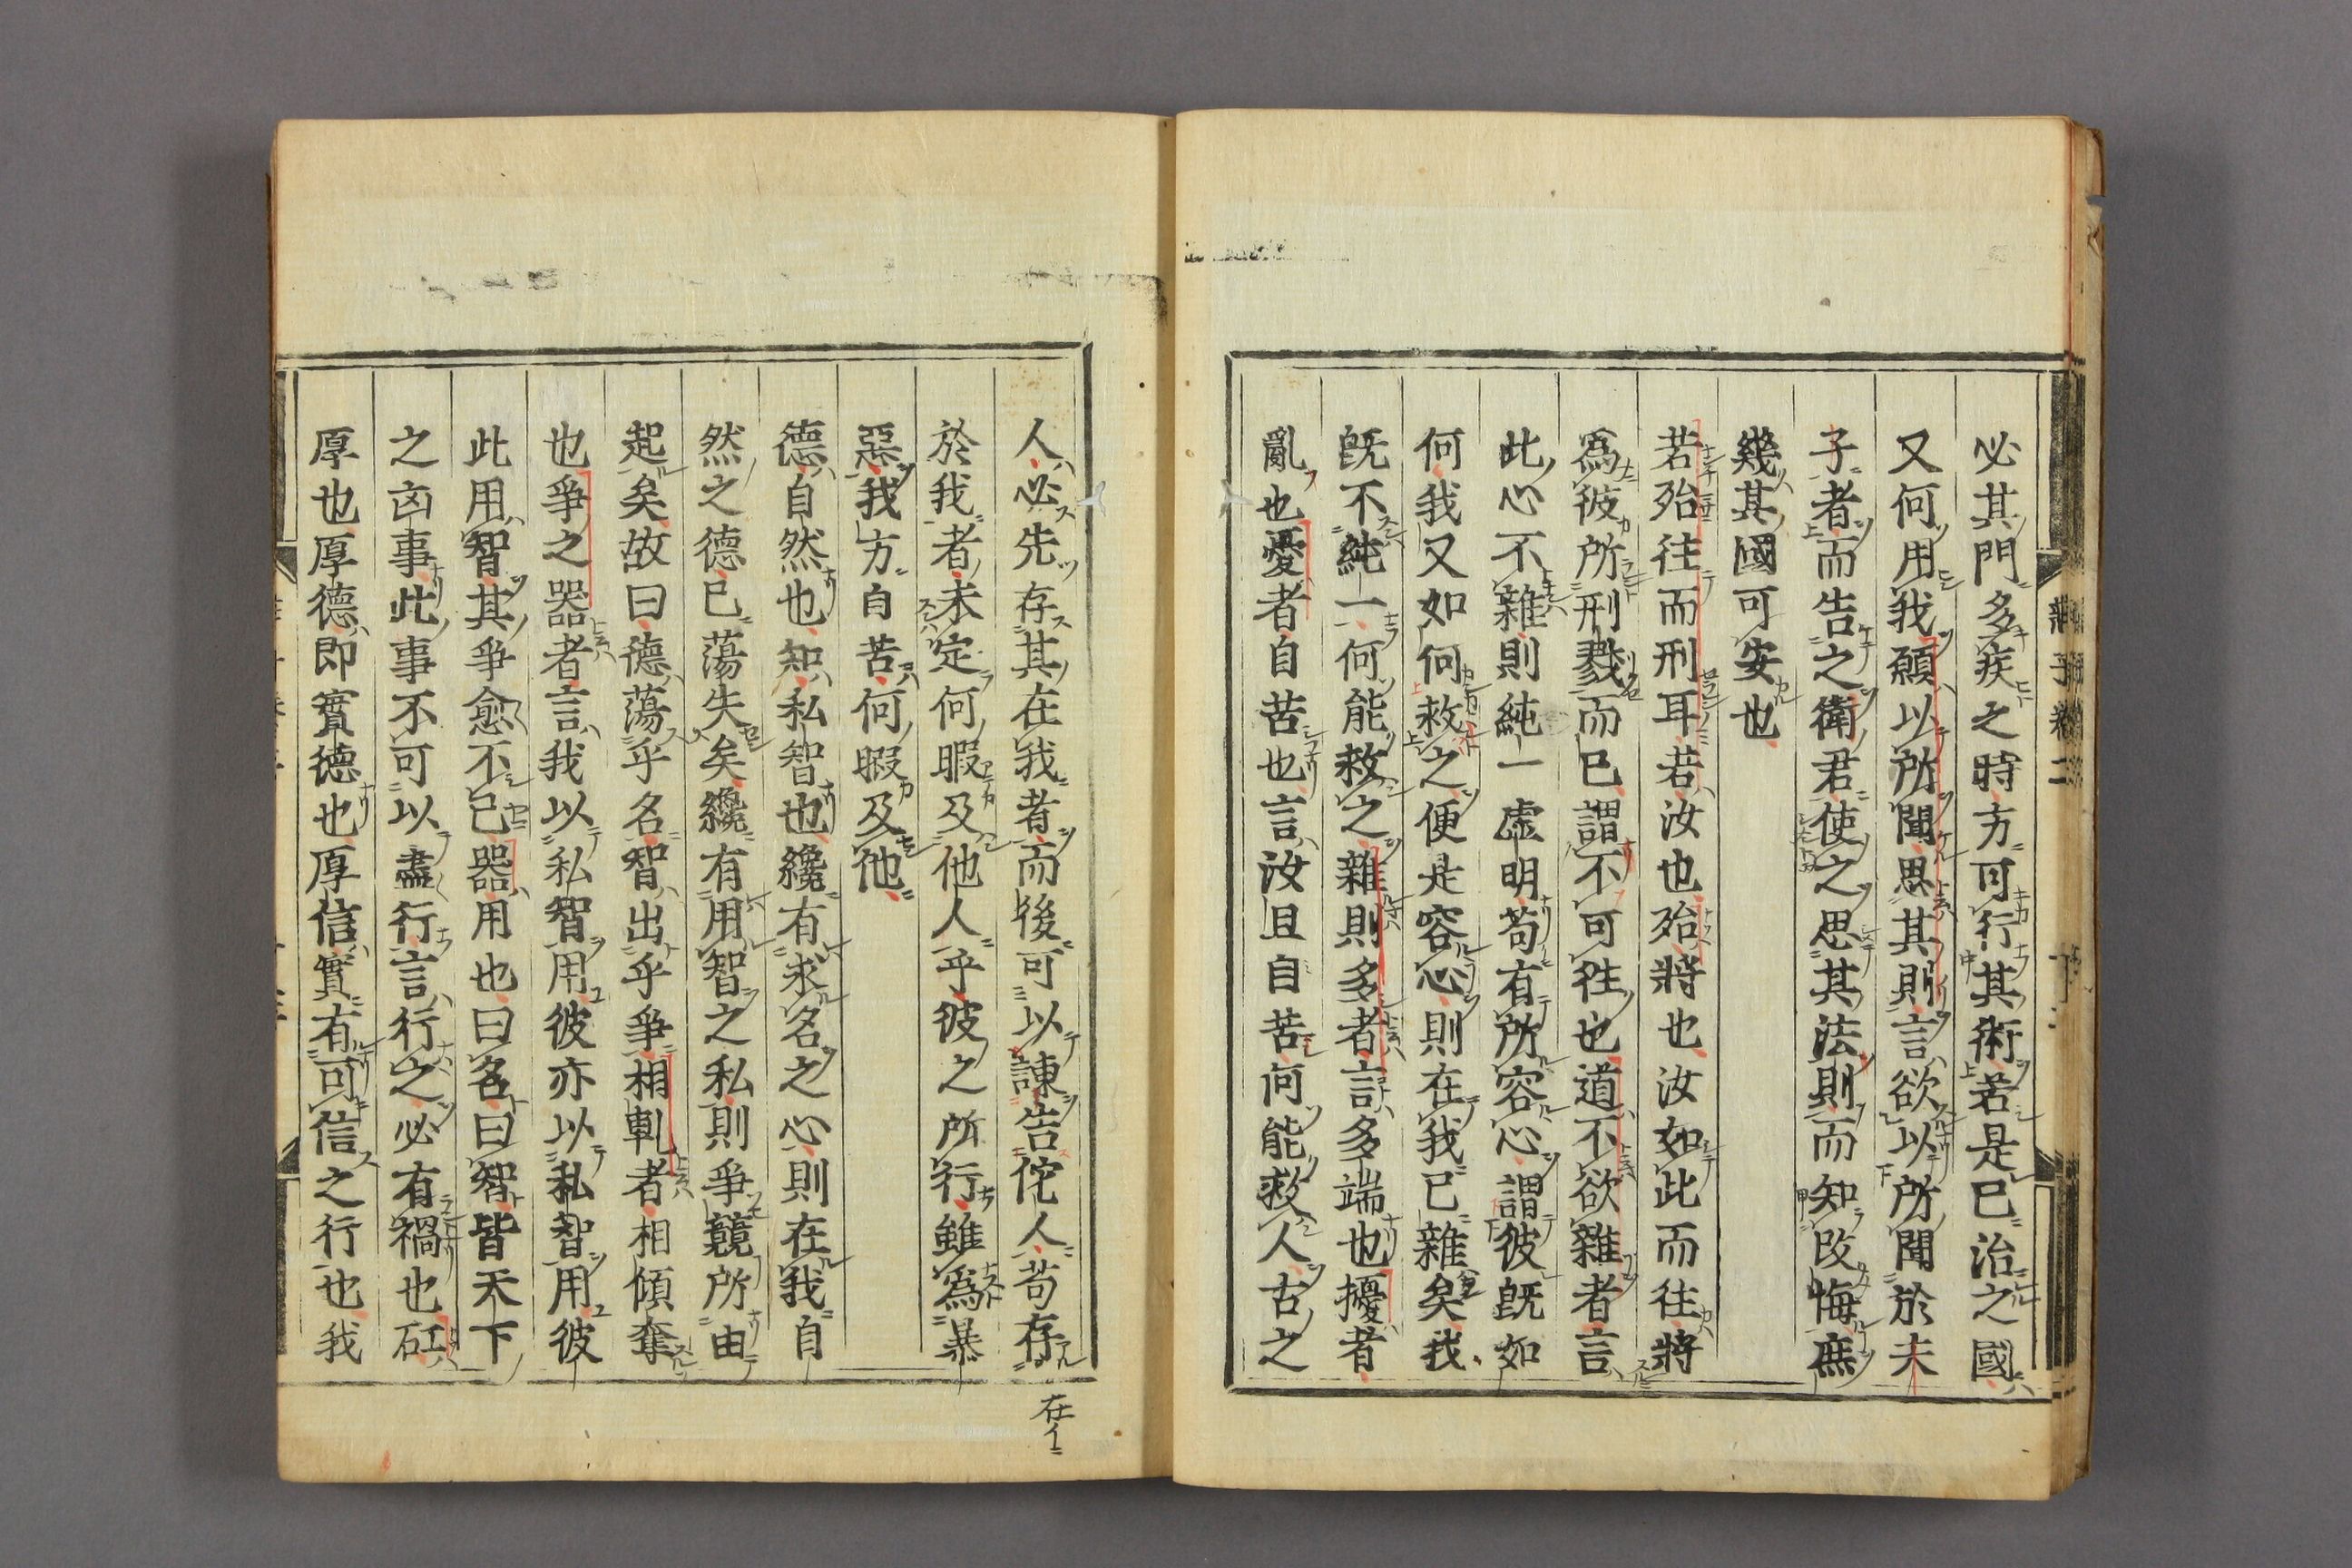 必其門多疾之時方可行其術若是已治之國
又何用我願以所聞思其則言欲以所聞於夫
子者而告之衛君使之思其法則而知改悔庶
幾其國可安也
若殆往而刑耳若汝也殆將也汝如此而往將
爲彼所刑戮而已謂不可往也道不欲雜者言
此心不雜則純一虛明苟有所容心謂彼既如
何我又如何救之便是容心則在我已雜矣我
既不純一何能救之雜則多者言多端也擾者
亂也憂者自苦也言汝且自苦何能救人古之
人必先存其在我者而後可以諫告佗人苟存
於我者未定何暇及他人乎彼之所行雖爲暴
惡我方自苦何暇及他
德自然也知私智也纔有求名之心則在我自
然之德已蕩失矣纔有用智之私則爭競所由
起矣故曰德蕩乎名智出乎爭相軋者相傾奪
也爭之器者言我以私智用彼亦以私智用彼
此用智其爭愈不已器用也曰名曰智皆天下
之凶事此事不可以盡行言行之必有禍也矼
厚也厚德即實德也厚信實有可信之行也我
在イ